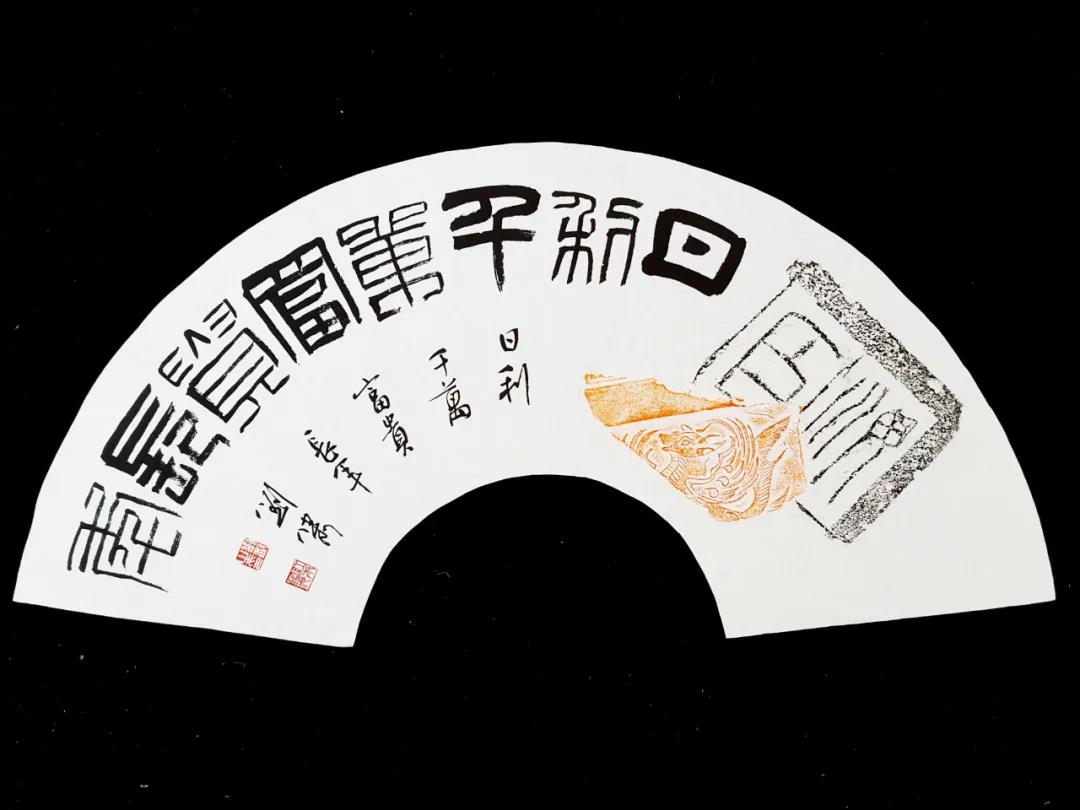 日利千萬富貴長年
日利
千萬
富貴
長年
劉